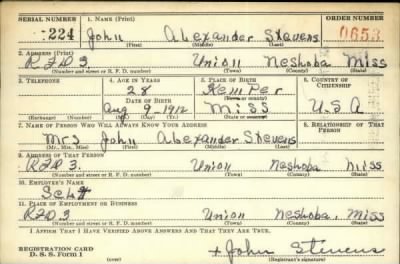 SERIAL NUMBER 1. NAME (Print) ORDER NUMBER
224 John Alexander Stevens 0653
(First) (Middle) (Last)
2. ADDRESS (Print)
R.F.D 3. Union Neshoba Miss
(Number and street or R. F. D. number) (Town) (County) (State)
3. TELEPHONE 4. AGE IN YEARS 5. PLACE OF BIRTH 6. COUNTRY OF CITIZENSHIP
28 Kemper
DATE OF BIRTH (Town or county)
Aug 9 1912 Miss U.S.A
(Exchange) (Number) (Mo.) (Day) (Yr.) (State or country)
7. NAME OF PERSON WHO WILL ALWAYS KNOW YOUR ADDRESS 8. RELATIONSHIP OF THAT PERSON
Mrs John Alexander Stevens
(Mr., Mrs., Miss) (First) (Middle) (Last)
9. ADDRESS OF THAT PERSON
R.F.D 3. Union Neshoba Miss
(Number and street or R. F. D. number) (Town) (County) (State)
10. EMPLOYER'S NAME
Self
11. PLACE OF EMPLOYMENT OR BUSINESS
R.F.D 3 Union Neshoba, Miss
(Number and street or R. F. D. number) (Town) (County) (State)
I AFFIRM THAT I HAVE VERIFIED ABOVE ANSWERS AND THAT THEY ARE TRUE.
REGISTRATION CARD
D. S. S. Form 1
John Stevens
(Registrant's signature)